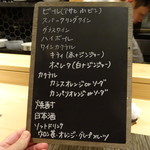 ビール(アサヒ 小ビン)
スパークリングワイン
グラスワイン
ハイボール
ワインカクテル
キティ(赤×ジンジャー)
オペレーター(白×ジンジャー)
カクテル
カシスオレンジorソーダ
カンパリオレンジorソーダ
焼酎
日本酒
ソフトドリンク
ウーロン茶・オレンジ・グレープフルーツ